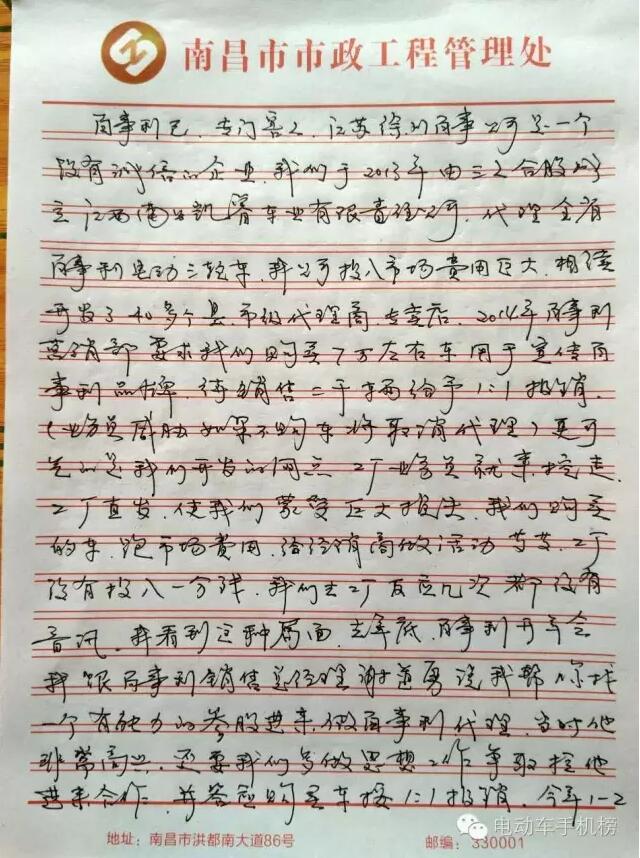 南昌市市政工程管理处
百事利已、专门害人、江苏徐州百事公司是一个
没有诚信的企业、我们于2013年由三人合股成
立江西南昌凯 车业有限责任公司、代理全省
百事利电动三轮车、我公司投入市场费用巨大、相继
开发了40多个县、市级代理商、专卖店、2014年百事利
营销部要求我们购买7万左右车用于宣传百
事利品牌、待销售二千辆给予1:1报销.
（业务员威胁如果不购车将取消代理）更可
笑的是我们开发的网点工厂业务员就来挖走、
工厂直发、使我们蒙受巨大损失、我们购买
的车、跑市场费用、给经销商做活动等等、工厂
没有投入一分钱、我们去工厂反应几次都没有
音讯、我看到这种局面、去年底、百事利开年会
我跟百事利销售总经理谢道勇说我帮你找
一个有能力的参股进来做百事利代理、当时他
非常高兴、还要我们多做思想工作争取把他
进来合作、并答应购买车按1:1报销、今年1-2
地址：南昌市洪都南大道86号 邮编：330001
电动车手机榜